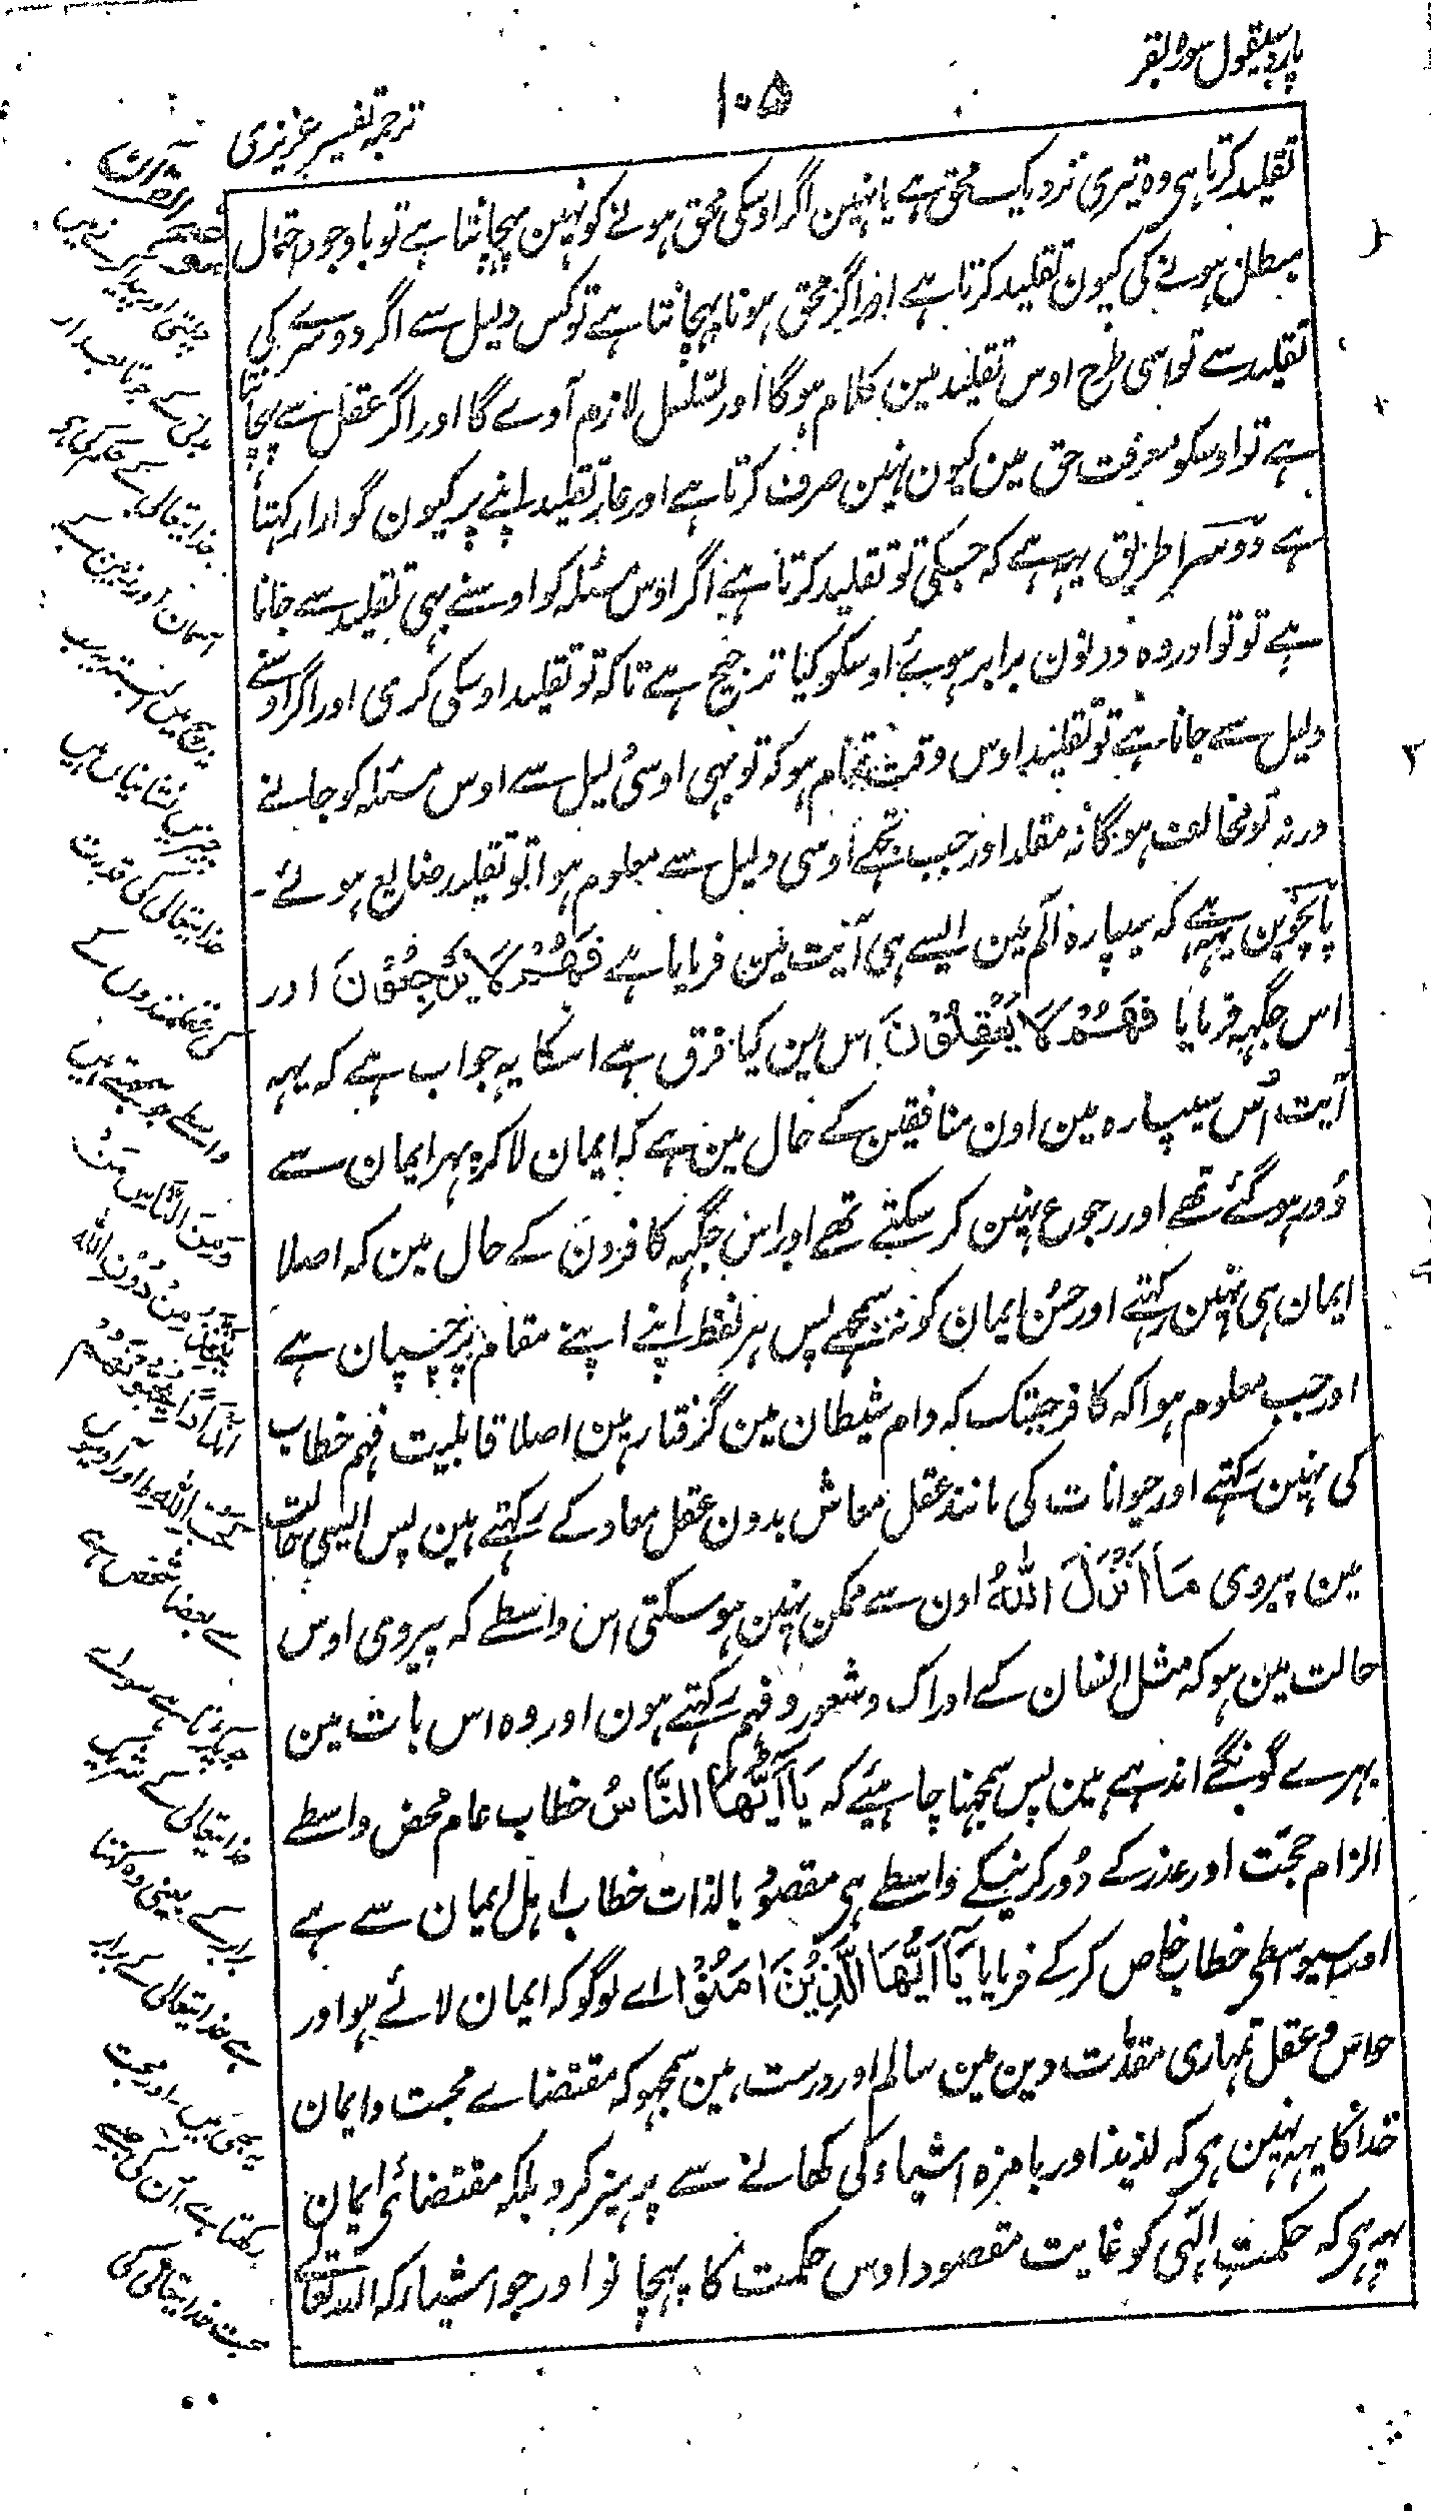 پارہ سیقول سورہ بقر
۱۰۵
ترجمہ تفسیر عزیزی
تقلید کرتا ہی وہ تیری نزدیک محق ہے یا نہین اگر اوسکی محق ہونے کو نہین پہچانتا ہے تو باوجود احتمال
مبطل ہونے کی کیون تقلید کرتا ہے اور اگر محق ہونا پہچانتا ہے تو کس دلیل سے اگر دوسرے کی
تقلید سے تو اسی طرح اوس تقلید مین کلام ہو گا اور تسلسل لازم آوے گا اور اگر عقل سے پہچانتا
ہے تو اوسکو معرفت حق مین کیون نہین صرف کرتا ہے اور عار تقلید اپنے پر کیون گوارا رکہتا
ہے دوسرا طریق یہہ ہے کہ جسکی تو تقلید کرتا ہے اگر اوس مسئلہ کو اوسنے بہی تقلید سے جانا
ہے تو تو اور وہ دونون برابر ہوئے اوسکو کیا ترجیح ہے تاکہ تو تقلید اوسکی کری اور اگر اوسنے
دلیل سے جانا ہے تو تقلید اوس وقت تمام ہو کہ تو بہی اوسی دلیل سے اوس مسئلہ کو جانے
ورنہ تو مخالف ہو گا نہ مقلد اور جب تجھے اوسی دلیل سے معلوم ہوا تو تقلید ضایع ہوئے ۔
پانچوین یہہ ہے کہ سیپارہ الم مین ایسے ہی آیت مین فرمایا ہے فَهُمْ لَا يَرْجِعُوْنَ اور
اس جگہہ فرمایا فَهُمْ لَا يَعْقِلُوْنَ اس مین کیا فرق ہے اسکا یہ جواب ہے کہ یہہ
آیت اُس سیپارہ مین اون منافقین کے حال مین ہے کہ ایمان لا کر پہر ایمان سے
دُور ہو گئے تھے اور رجوع نہین کر سکتے تھے اور اس جگہہ کافرون کے حال مین کہ اصلا
ایمان ہی نہین رکہتے اور حسن ایمان کو نہ سمجھے پس ہر لفظ اپنے اپنے مقام پر چسپان ہے
اور جب معلوم ہوا کہ کافر جبتک کہ دام شیطان مین گرفتار ہین اصلا قابلیت فہم خطاب
کی نہین رکہتے اور حیوانات کی مانند عقل معاش بدون عقل معاد کے رکہتے ہین پس ایسی حالت
مین پیروی مَا اَنْزَلَ اللهُ اون سے ممکن نہین ہو سکتی اس واسطے کہ پیروی اوس
حالت مین ہو کہ مثل انسان کے ادراک و شعور و فہم رکہتے ہون اور وہ اس بات مین
بہرے گونگے اندہے ہین پس سمجہنا چاہیئے کہ يَا اَيُّهَا النَّاسُ خطاب عام محض واسطے
الزام حجّت اور عذر کے دُور کرنیکے واسطے ہی مقصود بالذات خطاب اہل ایمان سے ہے
اور اسیواسطی خطاب خاص کر کے فرمایا يَا اَيُّهَا الَّذِيْنَ اٰمَنُوْا اے لوگو کہ ایمان لائے ہو اور
حواس و عقل تمہاری مقدمات دین مین سالم اور درست ہین سمجہو کہ مقتضاے محبت و ایمان
خدا کا یہہ نہین ہی کہ لذیذ اور بامزہ اشیاء کی کھانے سے پرہیز کرو بلکہ مقتضائی ایمان
یہہ ہی کہ حکمتِ الٰہی کو غایت مقصود اوس حکمت کا پہچانو اور جو اشیاء کہ اللہ تعالے
چلتی اور پیدا کرنے میں
بدلی کے جو تابعدار
خدایتعالی کے حکم کی ہے
آسمان اور زمین کے
بیچ میں البتہ یہہ سب
چیزیں نشانیاں ہیں
خدایتعالی کی قدرت
کی عقلمندوں کے
واسطے جو سمجھتے ہیں
وَمِنَ النَّاسِ مَنْ
يَّتَّخِذُ مِنْ دُوْنِ اللهِ
اَنْدَادًا يُّحِبُّوْنَهُمْ
كَحُبِّ اللهِ ط اور آدمیوں
سے بعضا شخص ہے
جو پکڑتا ہے سواے
خدایتعالی کے شریک
برابر کے یعنی وہ کہتا
ہے خدایتعالی کے برابر
یہ بہی ہیں اور محبت
رکھتا ہے اُن کی جیسے
محبت خدایتعالی کی